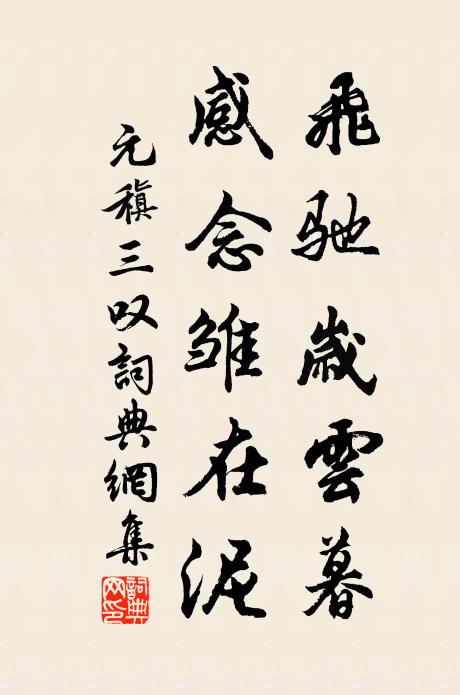 飛馳歲雲暮
感念雛在泥
元稹三叹詞典網集
詞典网印